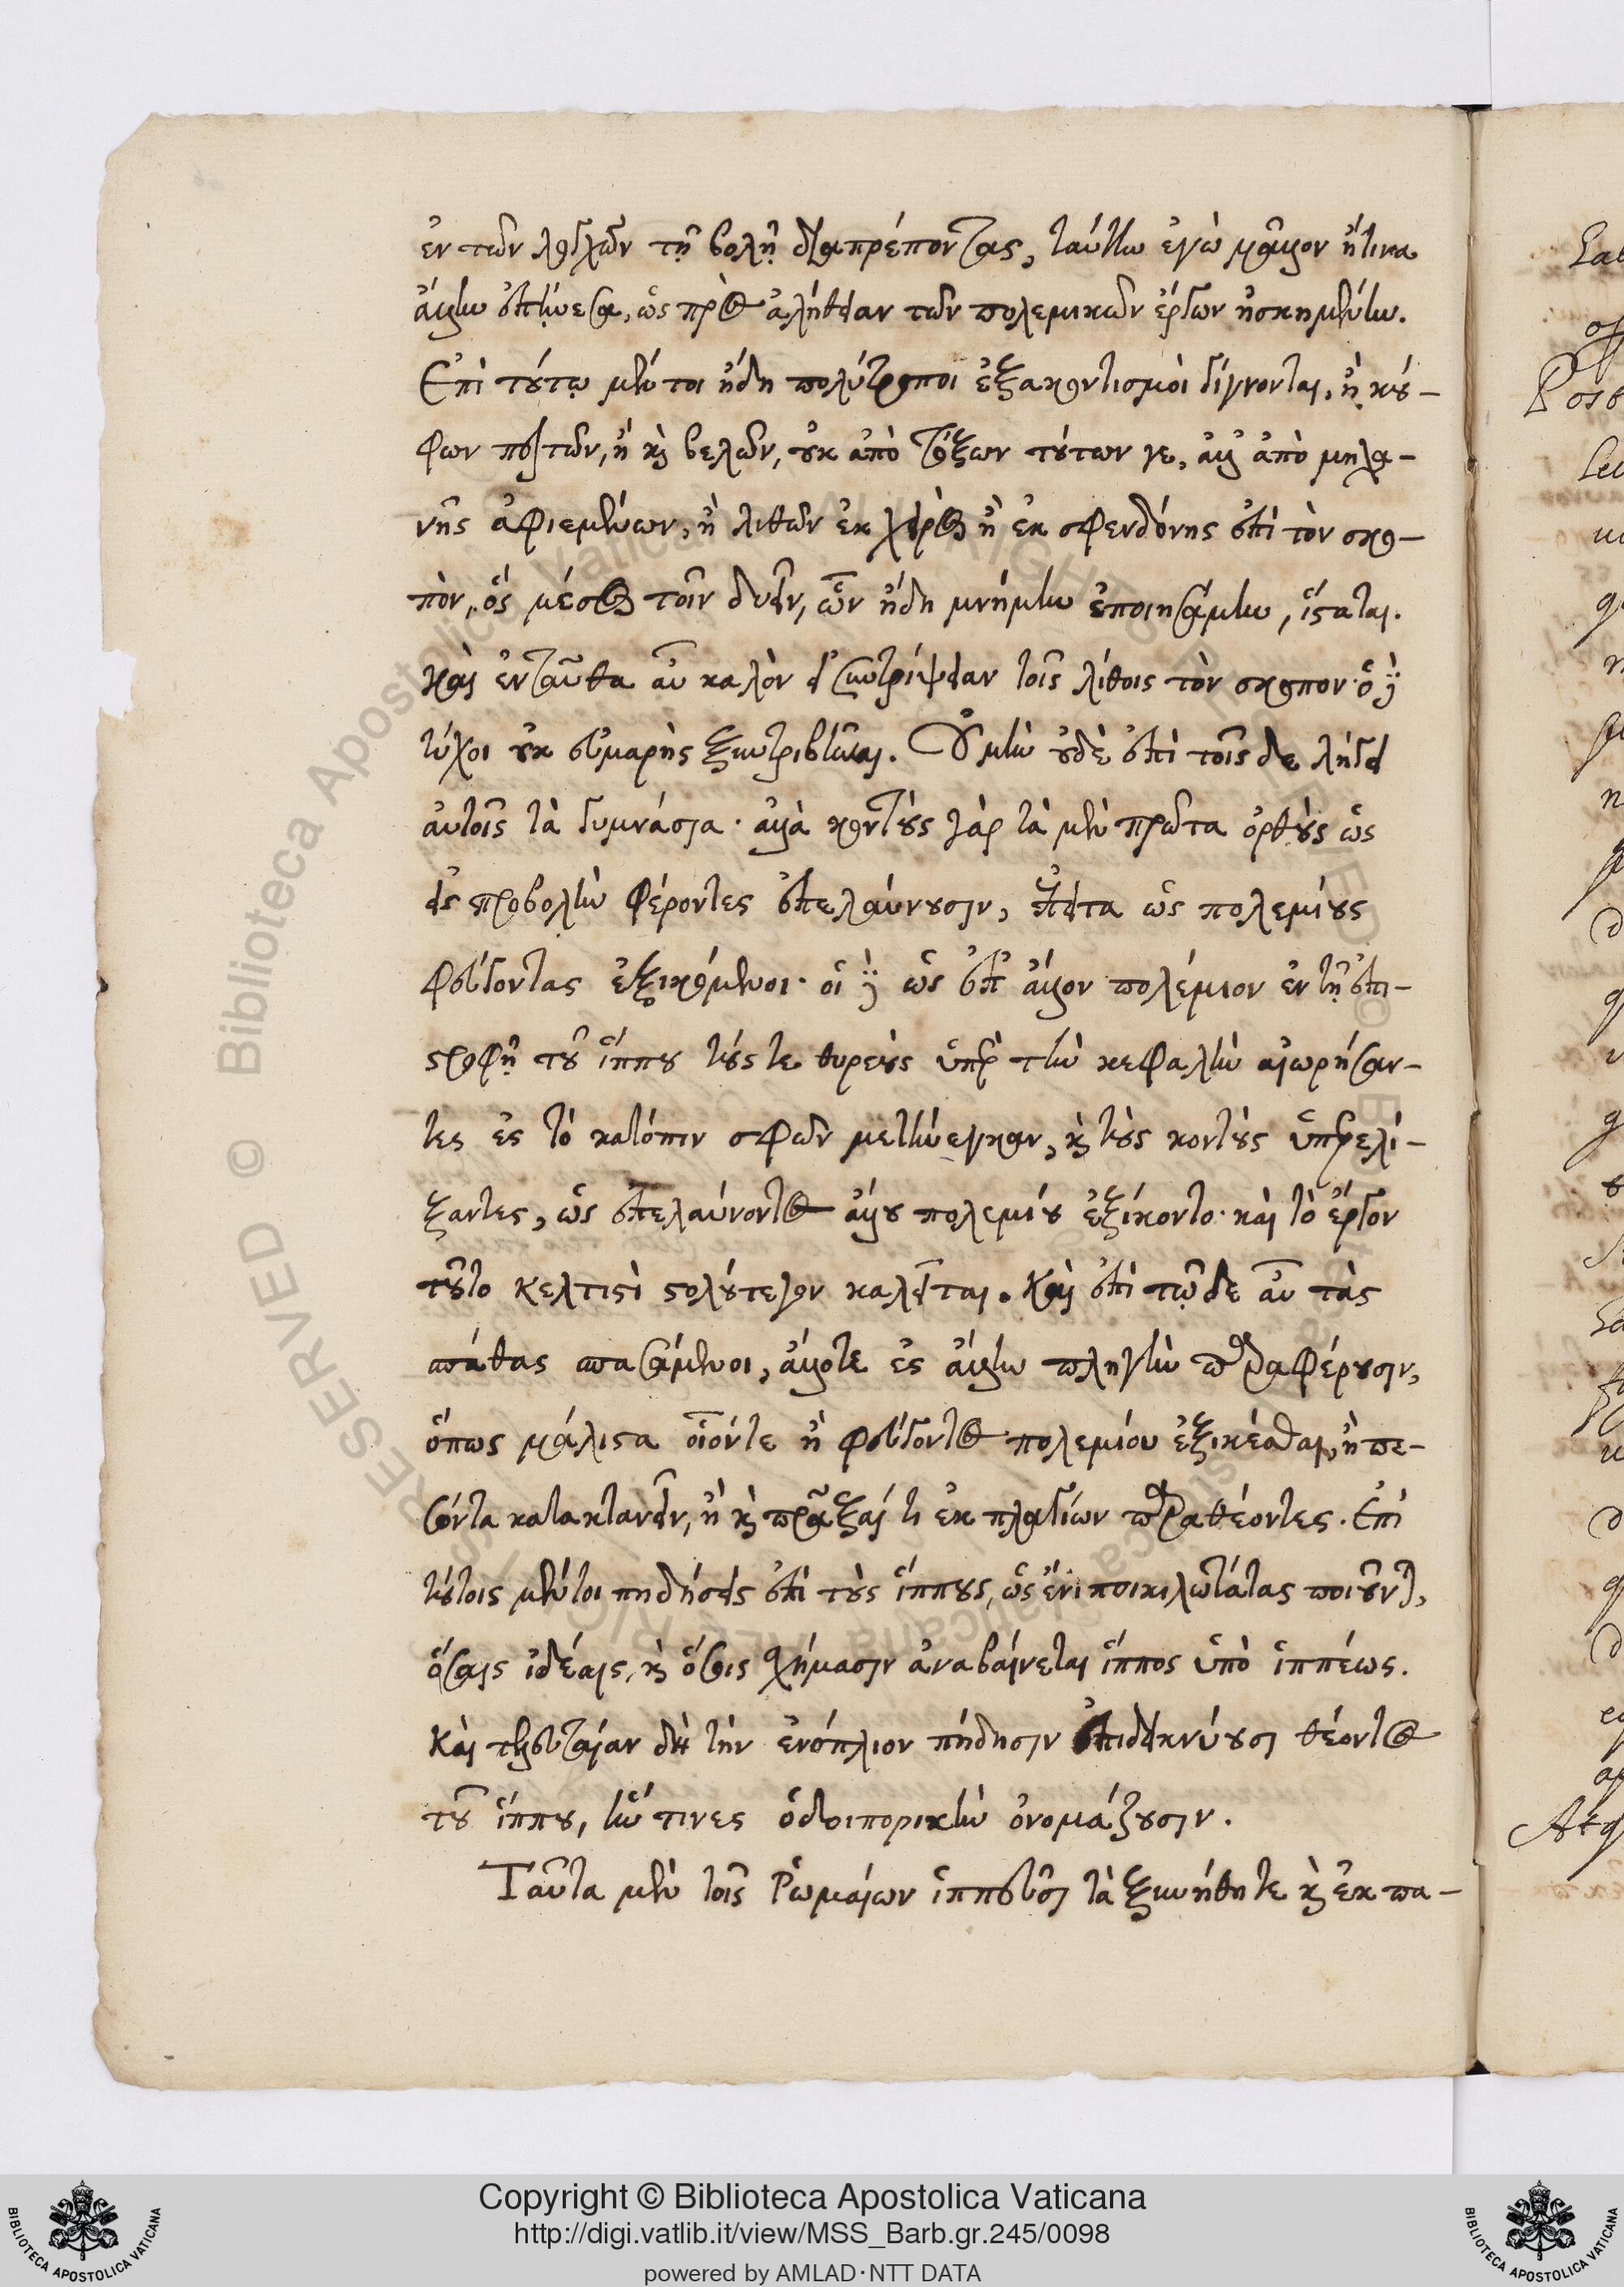 ἐν τῶν λογχῶν τῇ βολῇ διαπρέποντας, ταύτην ἐγὼ μᾶλλον ἥτινα
ἄλλην ἐπῄνεσα, ὡς πρὸς ἀλήθειαν τῶν πολεμικῶν ἔργων ἠσκημένην.
Ἐπὶ τούτῳ μέν τοι ἤδη πολύτροποι ἐξακοντισμοὶ γίγνονται, ἢ κού-
φων παλτῶν, ἢ καὶ βελῶν, οὐκ ἀπὸ τόξων τούτων γε, ἀλλ' ἀπὸ μηχα-
νῆς ἀφιεμένων, ἢ λιθῶν ἐκ χειρὸς ἢ ἐκ σφενδόνης ἐπὶ τὸν σκο-
πὸν, ὃς μέσος τοῖν δυεῖν, ὧν ἤδη μνήμην ἐποιησάμην, ἵσταται.
Καὶ ἐνταῦθα αὖ καλὸν εἰ συντρίψειαν τοῖς λίθοις τὸν σκοπον· ὁ δὲ
τύχοι οὐκ εὐμαρὴς ξυντριβῆναι. Οὐ μὴν οὐδὲ ἐπὶ τοῖς δε λήγει
αὐτοῖς τὰ γυμνάσια· ἀλλὰ κοντοὺς γὰρ τὰ μὲν πρῶτα ὀρθοὺς ὡς
εἰς προβολὴν φέροντες ἐπελαύνουσιν, ἔπειτα ὡς πολεμίους
φεύγοντας ἐξικόμενοι· οἱ δὲ ὡς ἐπ' ἄλλον πολέμιον ἐν τῇ ἐπι-
στροφῇ τοῦ ἵππου τούς τε θυρεοὺς ὑπὲρ τὴν κεφαλὴν αἰωρήσαν-
τες ἐς τὸ κατόπιν σφῶν μετήνεγκαν, καὶ τοὺς κοντοὺς ὑπερελί-
ξαντες, ὡς ἐπελαύνοντος ἄλλου πολεμίου ἐξίκοντο· καὶ τὸ ἔργον
τοῦτο Κελτιστὶ στολούτεγον καλεῖται. Καὶ ἐπὶ τῷδε αὖ τὰς
σπάθας σπασάμενοι, ἄλλοτε ἐς ἄλλην πληγὴν παραφέρουσιν,
ὅπως μάλιστα οἷόντε ἢ φεύγοντος πολεμίου ἐξικέσθαι, ἢ πε-
σόντα κατακτανεῖν, ἢ καὶ πρᾶξαί τι ἐκ πλαγίων παραθέοντες. Ἐπὶ
τούτοις μέντοι πηδήσεις ἐπὶ τοὺς ἵππους, ὡς ἔνι ποικιλωτάτας ποιοῦνται,
ὅσαις ἰδέαις, καὶ ὅσοις σχήμασιν ἀναβαίνεται ἵππος ὑπὸ ἱππέως.
Καὶ τελευταίαν δὴ τὴν ἐνόπλιον πήδησιν ἐπιδεικνύουσι θέοντος
τοῦ ἵππου, ἥν τινες ὁδοιπορικὴν ὀνομάζουσιν.
Ταῦτα μὲν τοῖς Ῥωμαίων ἱππεῦσι τὰ ξυνήθη τε καὶ ἐκ πα-
Copyright © Biblioteca Apostolica Vaticana
http://digi.vatlib.it/view/MSS_Barb.gr.245/0098
powered by AMLAD·NTT DATA